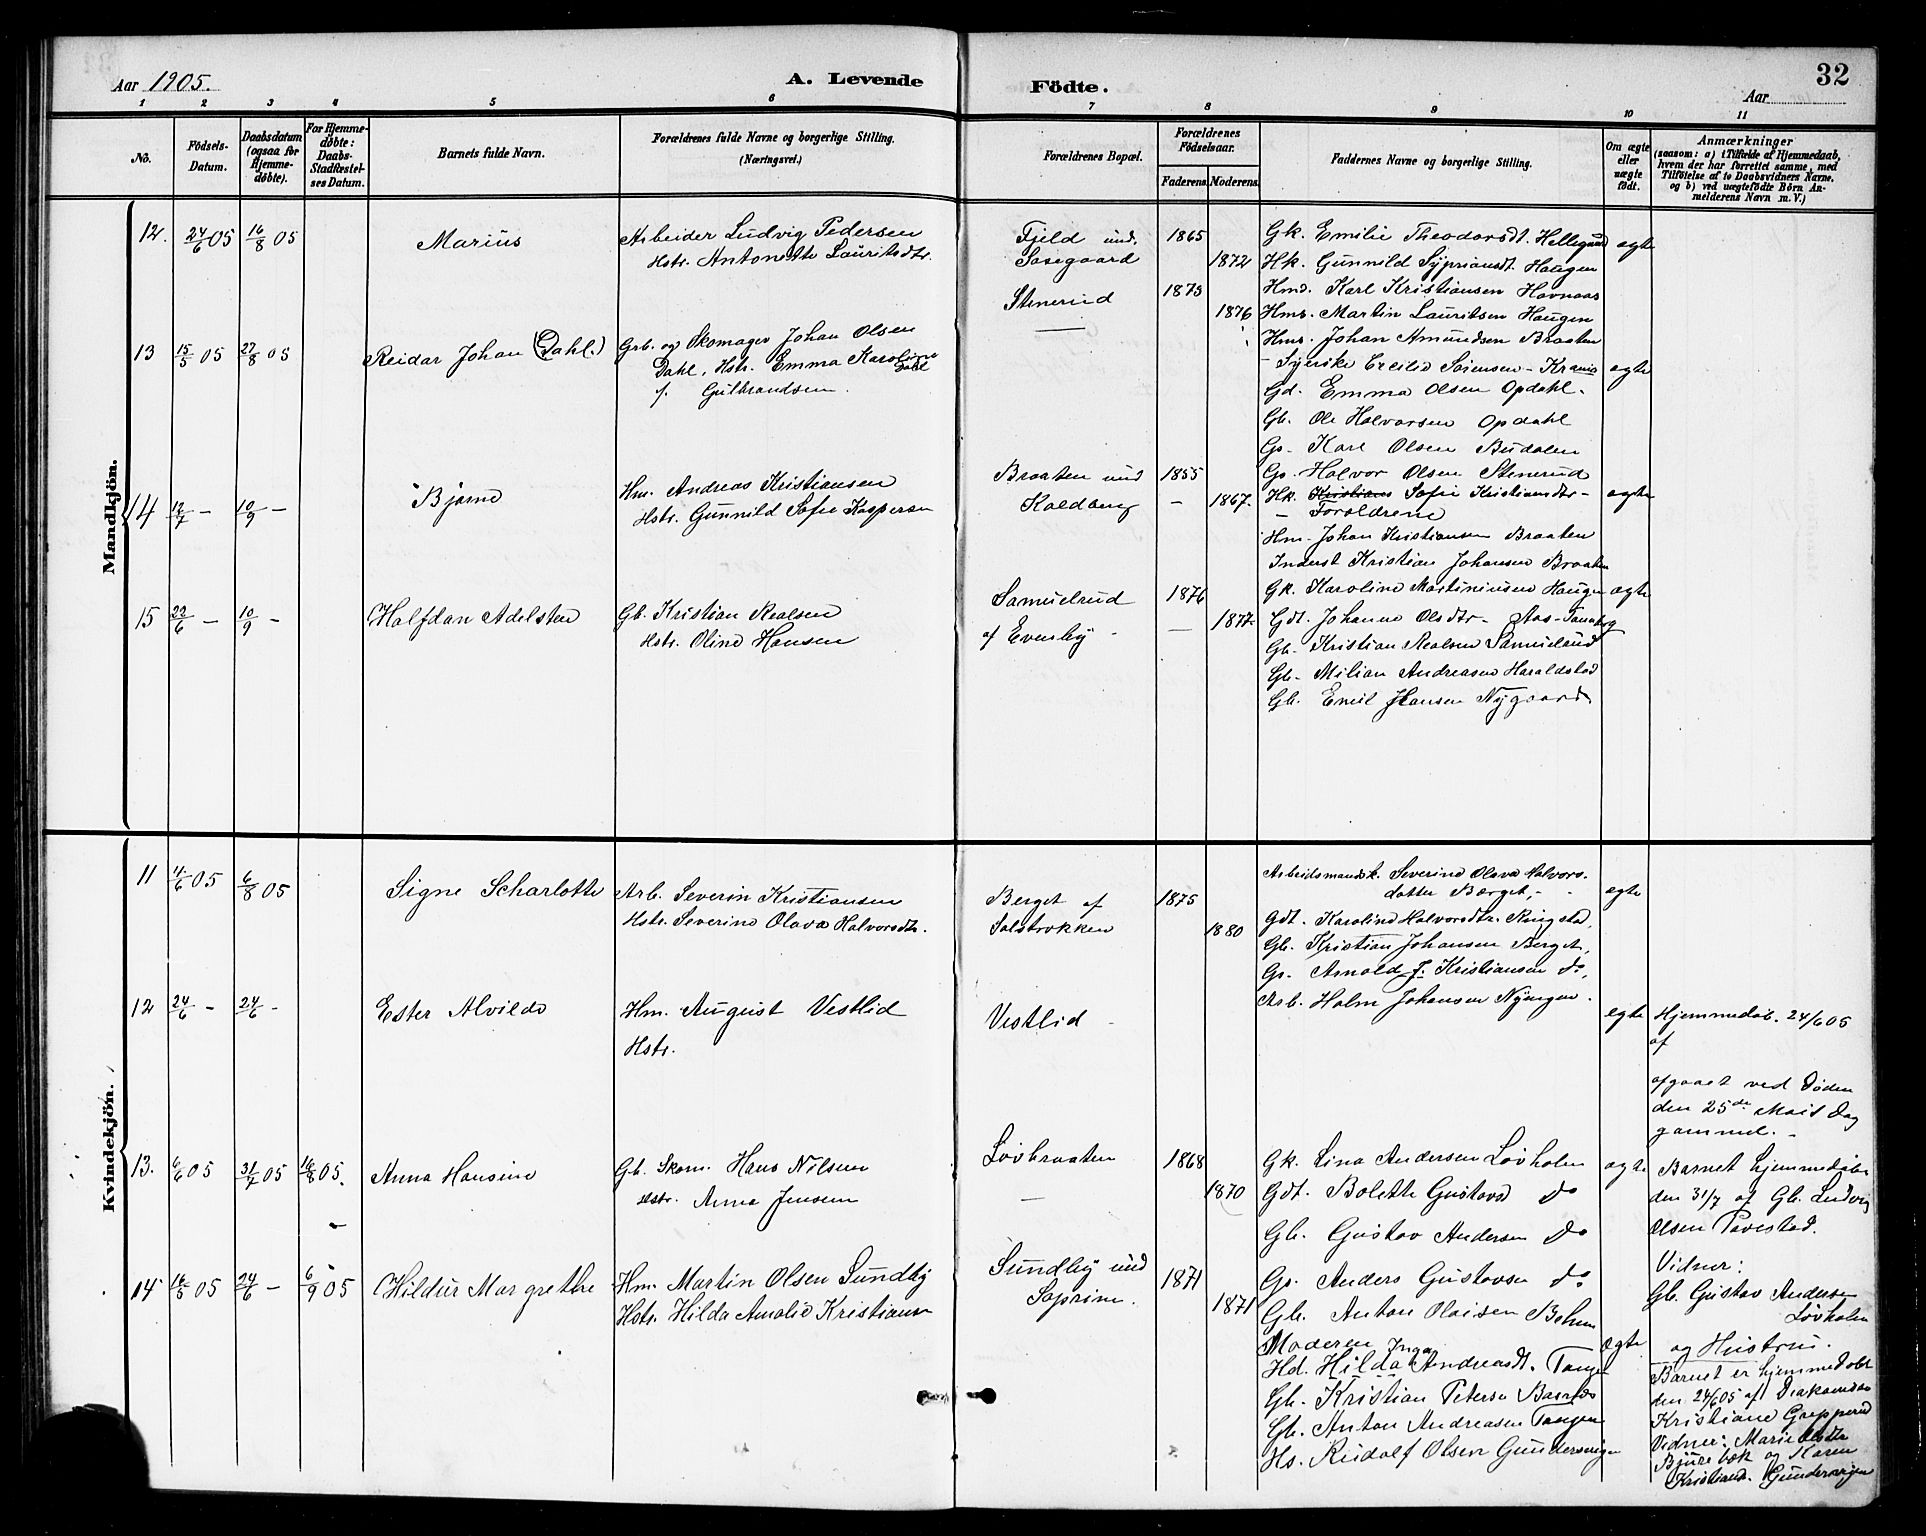 Aar 1905.
A. Levende
Födte.
32
Aar
1 2 3 4 5 6 7 8 9 10 11
No.
Födsels-
Datum.
Daabsdatum
(ogsaa for
Hjemme-
döbte).
For Hjemme-
döbte:
Daabs-
Stadfæstel-
ses Datum.
Barnets fulde Navn.
Forældrenes fulde Navne og borgerlige Stilling.
(Næringsvei.)
Forældrenes Bopæl.
Forældrenes
Födselsaar.
Faderens. Moderens.
Faddernes Navne og borgerlige Stilling.
Om ægte
eller
uægte
födt.
Anmærkninger
(saasom: a) i Tilfælde af Hjemmedaab,
hvem der har forrettet samme, med
Tilföielse af to Daabsvidners Navne.
og b) ved uægtefödte Börn An-
melderens Navn m. V.)
Mandkjön.
12. 24/6 05 16/8 05
Marius
Arbeider Ludvig Pedersen
Hstr. Antonette Lauritsdtr.
Fjeld und.
Sosegaard
1865
1872
Gk. Emilie Theodorsdt. Hellegaard
Hk. Gunnild Sypriansdt. Haugen
Hmd. Karl Kristiansen Havnaas
Hms. Martin Lauritsen Haugen
Hms. Johan Amundsen Braaten
ægte
13 15/5 05 27/8 05
Reidar Johan (Dahl.)
Grb. og Skomager Johan Olsen
Dahl, Hstr. Emma Karoline
Dahl
f. Gulbrandsen.
Stenerud
—
1873
1876
- Syerske Cecilie Sörensen - Kranis
Gd. Emma Olsen Opdahl.
Gb. Ole Halvorsen Opdahl
Gs. Karl Olsen Budalen
Gs. Halvor Olsen Stenerud
ægte
14 12/7 - 10/9 -
Bjarne
Hm. Andreas Kristiansen
Hstr. Gunnild Sofie Kaspersen
Braaten und
Koldberg
1855
- 1867.
Hk. Kristians Sofie Kristiansdtr -
- Forældrene
Hm. Johan Kristiansen Braaten
Inderst Kristian Johansen Braaten
ægte
15 22/6 - 10/9 -
Halfdan Adelsten
Gb. Kristian Realsen
Hstr. Oline Hansen
Samuelrud
af Evensby -
1876
— 1877
Gk. Karoline Martiniusen Haugen
Gdt. Johanne Olsdtr - Aas - Tannberg
Gb. Kristian Realsen Samuelrud
Gb. Milian Andreasen Haraldstad
Gb. Emil Hansen Nygaard
ægte
Kvindekjön.
11 4/6 05 6/8 05
Signe Scharlotte
Arb. Severin Kristiansen
Hstr. Severine Olava Halvorsdtr.
Berget af
Solstrokken
1875
1880
Arbeidsmandsk. Severine Olava Halvors-
datter Berget,
Gdt. Karoline Halvorsdtr. Ringstad,
Gb. Kristian Johansen Berget,
Gs. Arnold F. Kristiansen do,
Arb. Holm Johansen Nyengen.
ægte
12 24/6 - 24/6 -
Ester Alvilde
Hm. August Vestlid
Hstr.
Vestlid
egte
Hjemmedöb. 24/6 05
af
afgaaet ved Döden
den 25de Mait Dag
gammel. -
13. 6/6 05 31/7 05 16/8 05.
Anna Hansine
Gb. Skom. Hans Nilsen
Hstr. Anna Jensen
Lövbraaten
—
1868
1870
Gk. Lina Andersen Lövholm
Gdt. Bolette Gustavsd do
Gb. Gustav Andersen do
Gs. Anders Gustavsen do
Gb. Anton Olaisen Behum
ægte
Barnet hjemmedöbt
den 31/7 af Gb. Ludvig
Olsen Tovestad.
Vidner:
Gb. Gustav Andersen
Lövholm
og Hustru.
14 14/5 05 24/6 - 6/9 05
Hildur Margrethe
Hm. Martin Olsen Sundby
Hstr. Hilda Amalie Kristiansen
Sundby und
Soprim.
1871
1871
Moderen
Hd. Hilda Inga Andreasdt. Tangen
Gb. Kristian Petersen Basnæs
Gb. Anton Andreasen Tangen
Hs. Rudolf Olsen Gundersengen
ægte
Barnet er hjemmedöbt
den 24/6 05 af Diakonisse
Kristiane Grepperud
Vidner: Marie Olsdtr
Bjurebæk og Karen
Kristiansd. Gundersengen